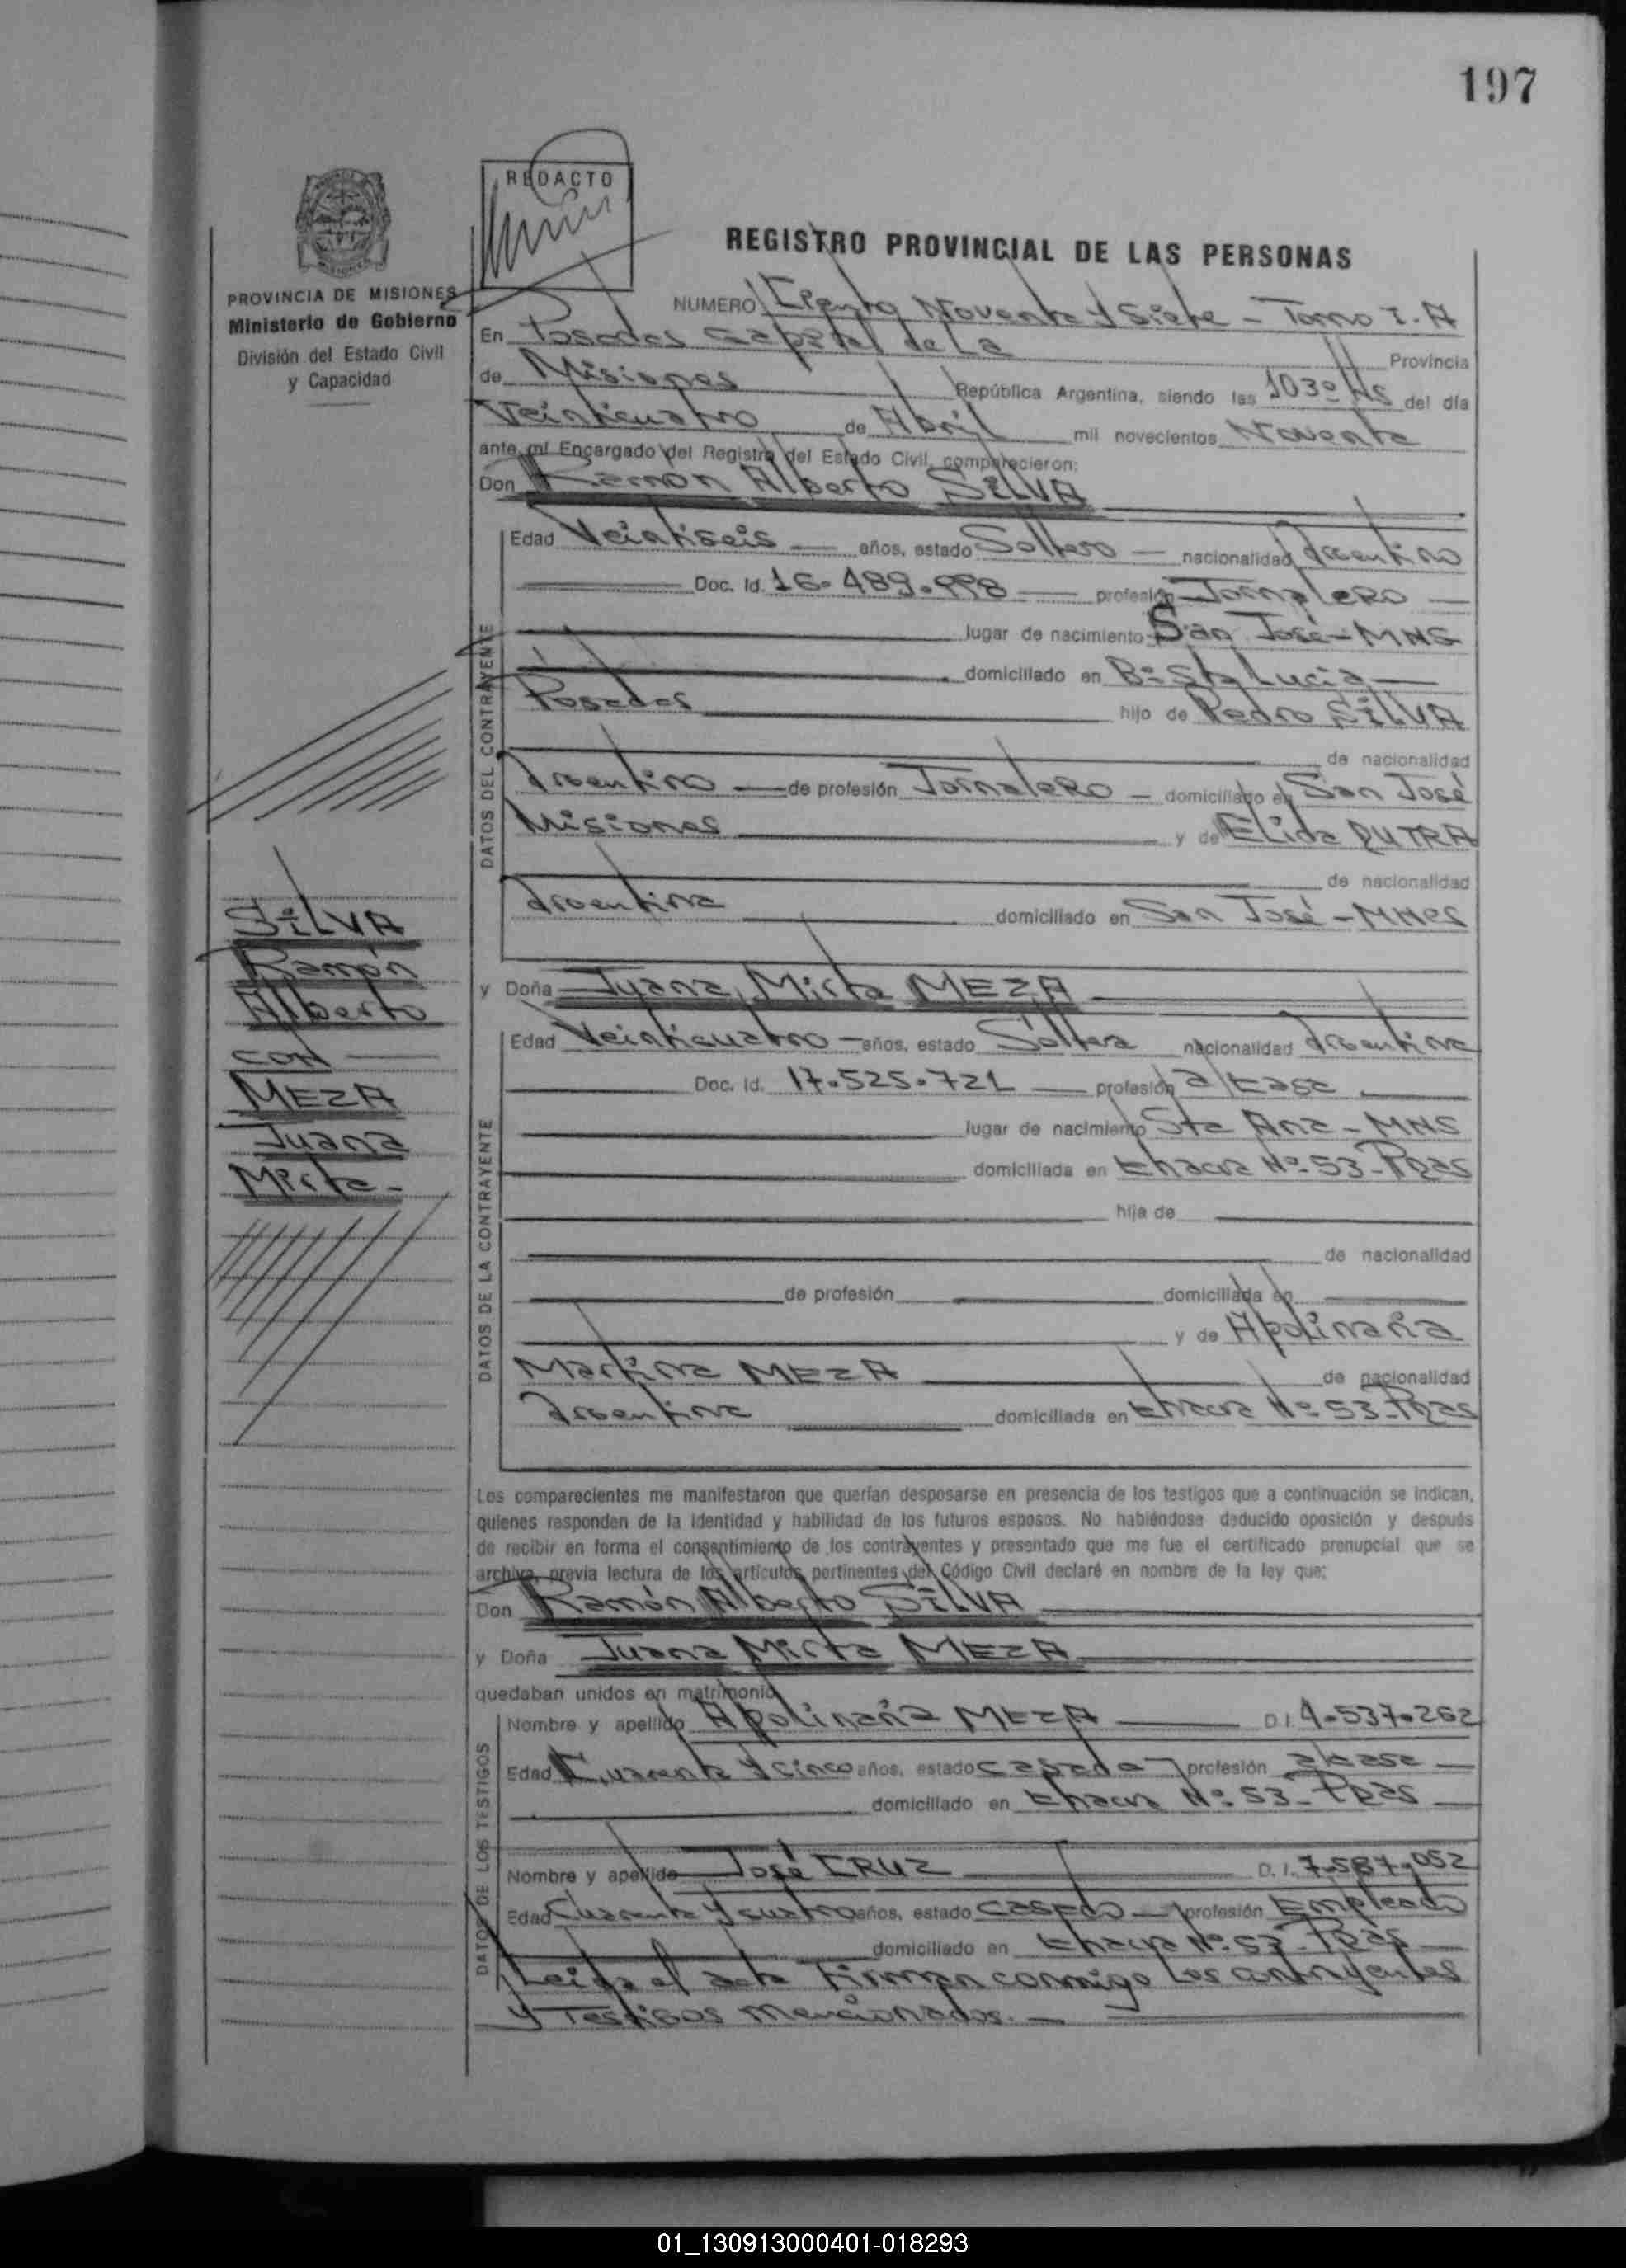 197
REDACTO
PROVINCIA DE MISIONES
Ministerio de Gobierno
División del Estado Civil
y Capacidad
REGISTRO PROVINCIAL DE LAS PERSONAS
NUMERO Ciento Noventa y Siete - Tomo I. A
En Posadas Capital de La Provincia
de Misiones República Argentina, siendo las 10 30 Hs del día
Veinticuatro de Abril mil novecientos Noventa
ante mí Encargado del Registro del Estado Civil, comparecieron:
Don Ramón Alberto SILVA
DATOS DEL CONTRAYENTE
Edad Veintiseis años, estado Soltero nacionalidad Argentino
Doc. Id. 16.489.998 profesión Jornalero
lugar de nacimiento San José - MNS
domiciliado en Bº Sta Lucia
Posadas hijo de Pedro SILVA
de nacionalidad
Argentino de profesión Jornalero - domiciliado en San José
Misiones y de Elida DUTRA
de nacionalidad
Argentina domiciliado en San José - MNes
SILVA
Ramón
Alberto
CON
MEZA
Juana
Mirta -
y Doña Juana Mirta MEZA
DATOS DE LA CONTRAYENTE
Edad Veinticuatro años, estado Soltera nacionalidad Argentina
Doc. Id. 17.525.721 profesión a/casa
lugar de nacimiento Sta Ana - MNS
domiciliada en Chacra Nº 53 - Pdas
hija de
de nacionalidad
de profesión domiciliada en
y de Apolinaria
Martina MEZA de nacionalidad
Argentina domiciliada en Chacra Nº 53 - Pdas
Los comparecientes me manifestaron que querían desposarse en presencia de los testigos que a continuación se indican,
quienes responden de la identidad y habilidad de los futuros esposos. No habiéndose deducido oposición y después
de recibir en forma el consentimiento de los contrayentes y presentado que me fue el certificado prenupcial que se
archiva, previa lectura de los artículos pertinentes del Código Civil declaré en nombre de la ley que:
Don Ramón Alberto SILVA
y Doña Juana Mirta MEZA
quedaban unidos en matrimonio
DATOS DE LOS TESTIGOS
Nombre y apellido Apolinaria MEZA D.I. 4.537.262
Edad Cuarenta y cinco años, estado casada profesión a/casa
domiciliado en Chacra Nº 53 - Pdas
Nombre y apellido José CRUZ D. I. 7.587.052
Edad Cuarenta y cuatro años, estado casado profesión Empleado
domiciliado en Chacra Nº 53 - Pdas
Leida el acta Firman conmigo Los contrayentes
y Testigos mencionados. -
01_130913000401-018293